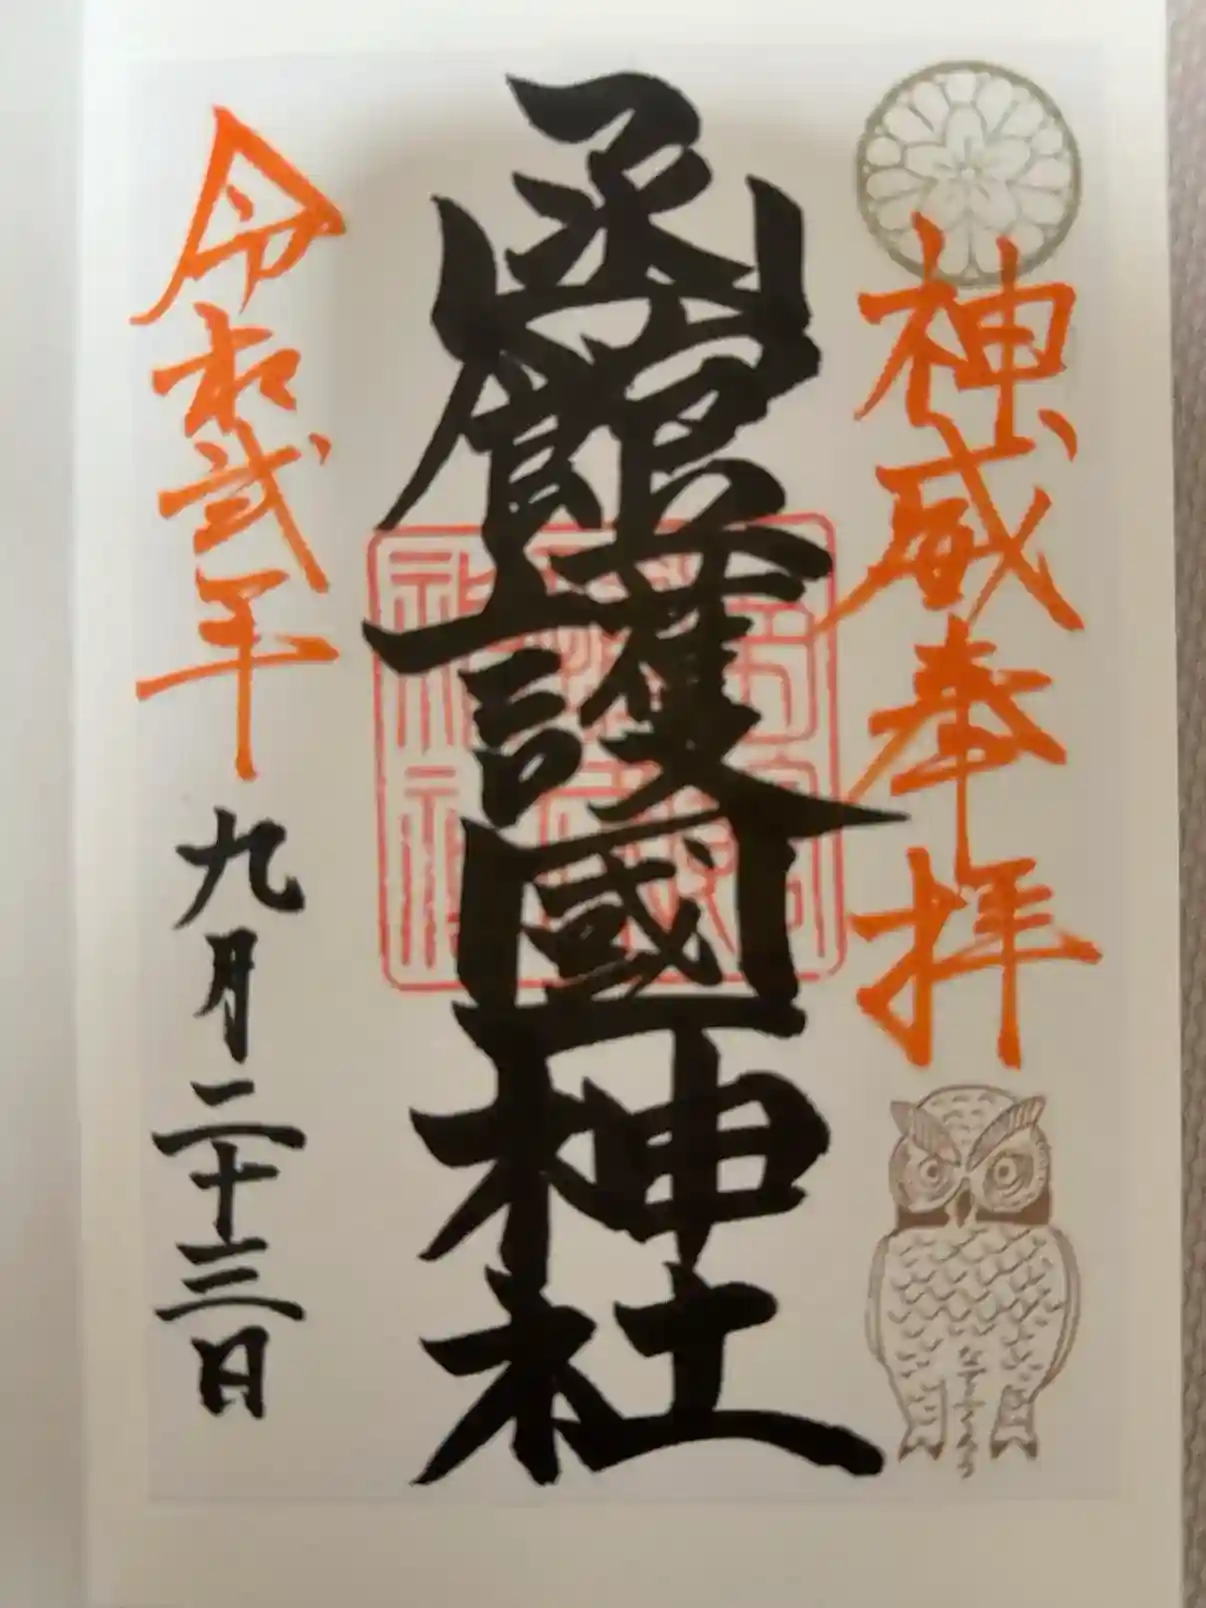 神威奉拝
函館護國神社
令和弐年九月二十三日